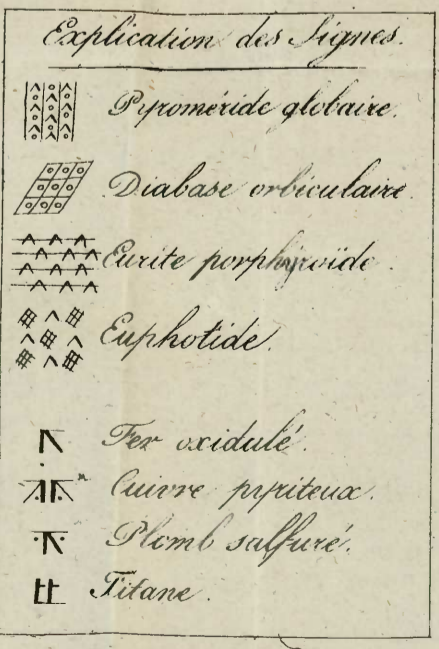 Explication des Signes.
Pyroméride globaire.
Diabase orbiculaire
Eurite porphyroïde.
Euphotide.
Fer oxidulé.
Cuivre pyriteux.
Plomb sulfuré.
Titane.